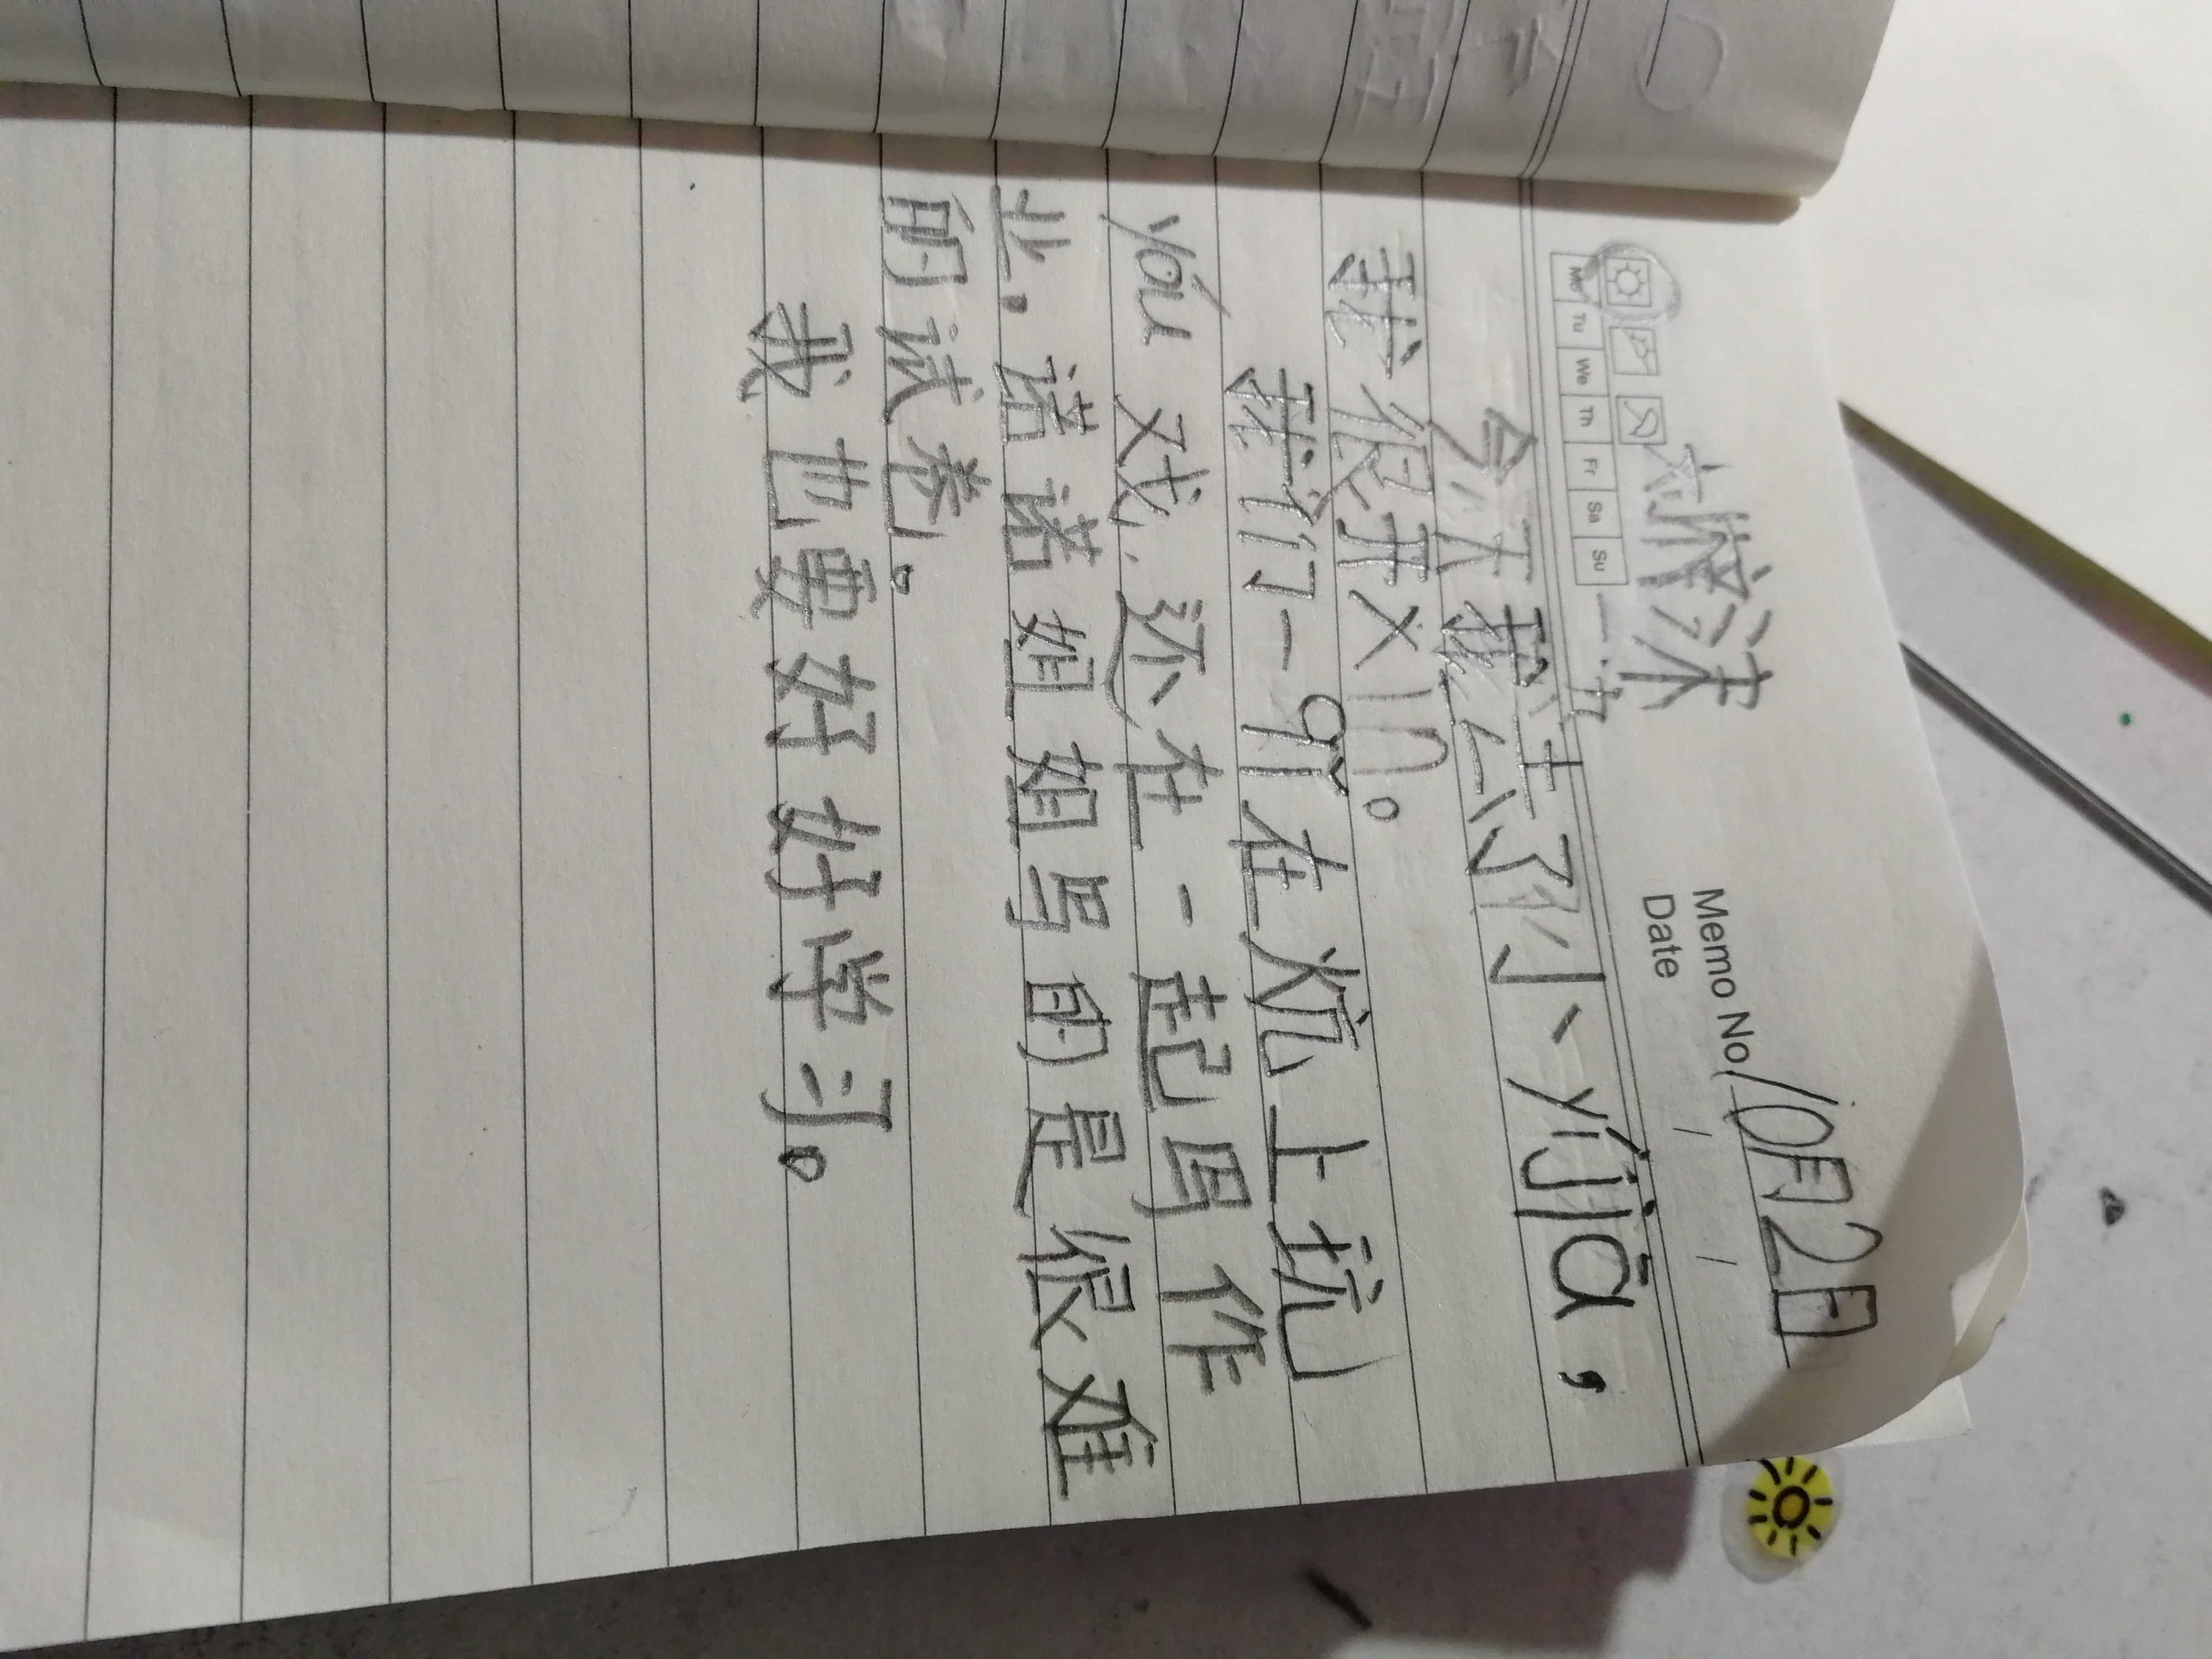 Memo No. 10月2日
Date / /
Mo Tu We Th Fr Sa Su
今天我去了小yíjiā，
我很开
我们一在炕上
yóu戏，还在一起写作
业，诺诺姐姐写的是很难
的试卷。
我也要好好学习。